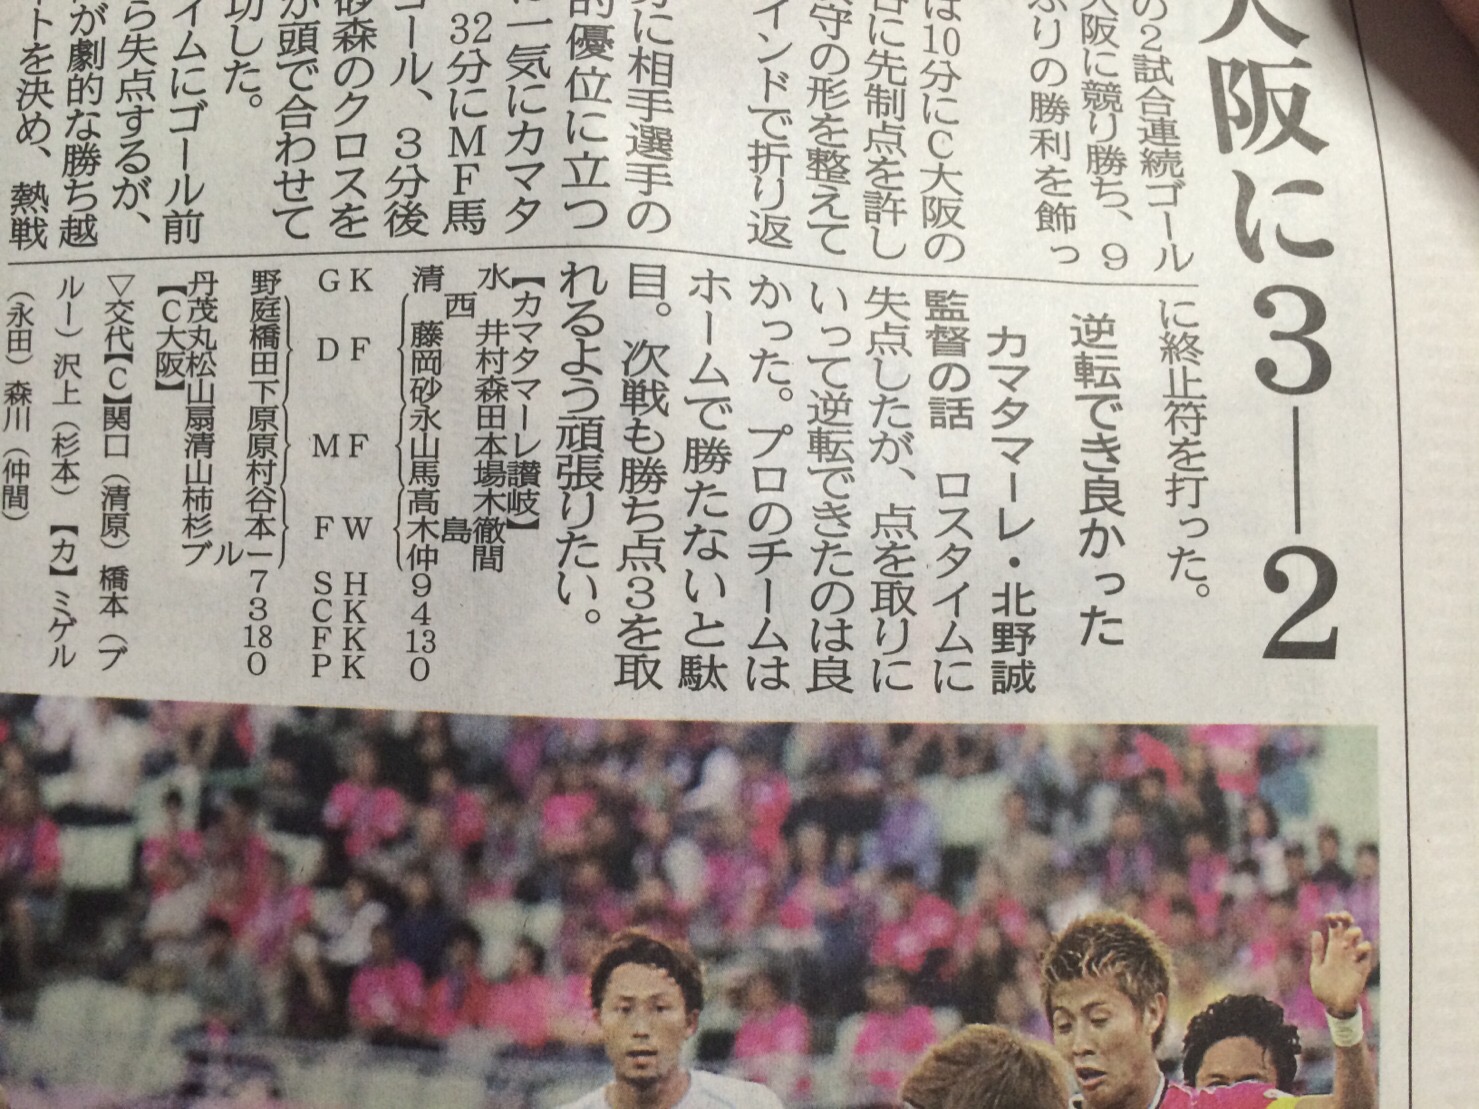 大阪に3―2
の2試合連続ゴール
大阪に競り勝ち、9
ぶりの勝利を飾っ
は10分にC大阪の
に先制点を許し
守の形を整えて
インドで折り返
に相手選手の
的優位に立つ
に一気にカマタ
32分にMF馬
ゴール、3分後
砂森のクロスを
が頭で合わせて
功した。
イムにゴール前
ら失点するが、
が劇的な勝ち越
ートを決め、熱戦
に終止符を打った。
逆転でき良かった
カマタマーレ・北野誠
監督の話 ロスタイムに
失点したが、点を取りに
いって逆転できたのは良
かった。プロのチームは
ホームで勝たないと駄
目。次戦も勝ち点3を取
れるよう頑張りたい。
【カマタマーレ讃岐】
水 井村森田本場木徹間
西 島
清 藤岡砂永山馬高木仲 9 4 13 0
K F F W H K K K
G D M F S C F P
野庭橋田下原原村谷本ー 7 3 18 0
ル
丹茂丸松山扇清山柿杉ブ
【C大阪】
▽交代【C】関口(清原)橋本(ブ
ルー)沢上(杉本)【カ】ミゲル
(永田)森川(仲間)